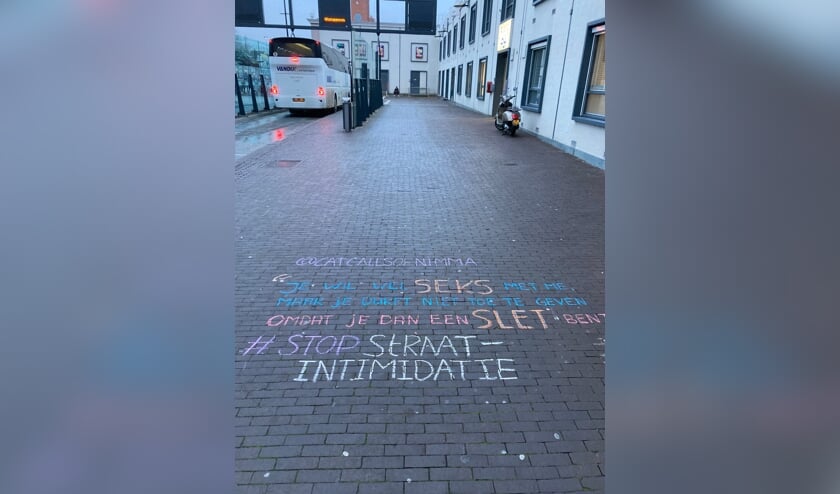 @CATCALLSOFNIMMA
"JE WIL WEL SEKS MET ME,
MAAR JE DURFT NIET TOE TE GEVEN
OMDAT JE DAN EEN SLET BENT
#STOP STRAAT-
INTIMIDATIE